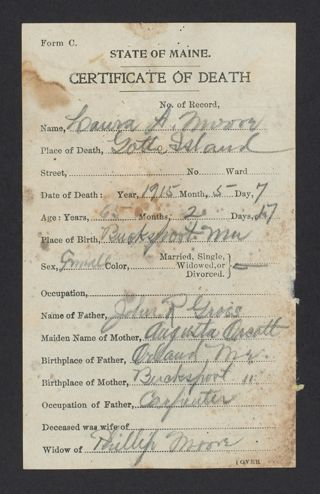 Form C.
STATE OF MAINE.
CERTIFICATE OF DEATH
No. of Record,
Name, Laura A. Moore
Place of Death, Gotts Island
Street, No. Ward
Date of Death: Year, 1915 Month, 5 Day, 7
Age: Years, 65 Months, 2 Days, 17
Place of Birth, Bucksport Me
Sex, Female Color, Married, Single, Widowed, or Divorced.
Occupation,
Name of Father, John R Gross
Maiden Name of Mother, Augusta Orcutt
Birthplace of Father, Orland Me.
Birthplace of Mother, Bucksport "
Occupation of Father, Carpenter
Deceased was wife of
Widow of Phillip Moore
[OVER